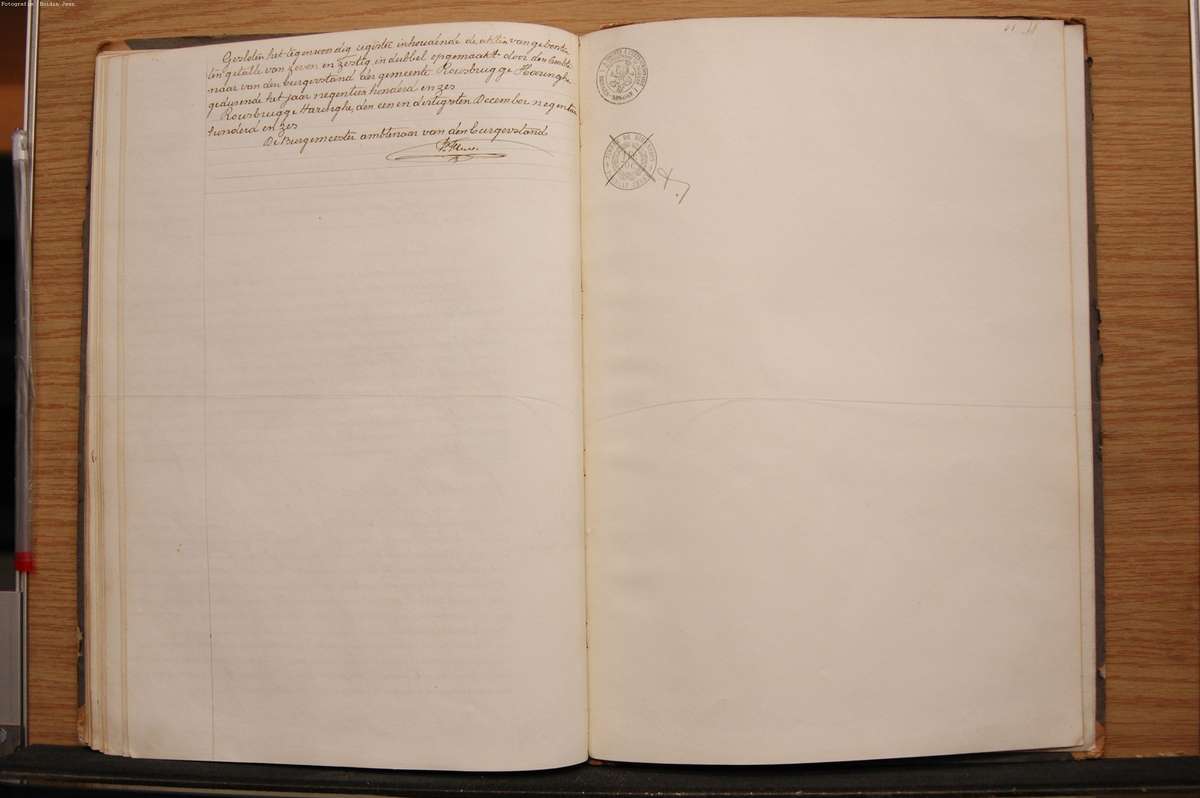 Fotografie: Boidin Jean
Gesloten het tegenwoordig register inhoudende de akten van geboorte
ten getalle van zeven en zestig in dubbel opgemaakt door den Ambte
naar van den burgerstand der gemeente Rousbrugge Haringhe
gedurende het jaar negentien honderd en zes
Rousbrugge Haringhe, den een en dertigsten December negentien
honderd en zes
De Burgemeester ambtenaar van den burgerstand